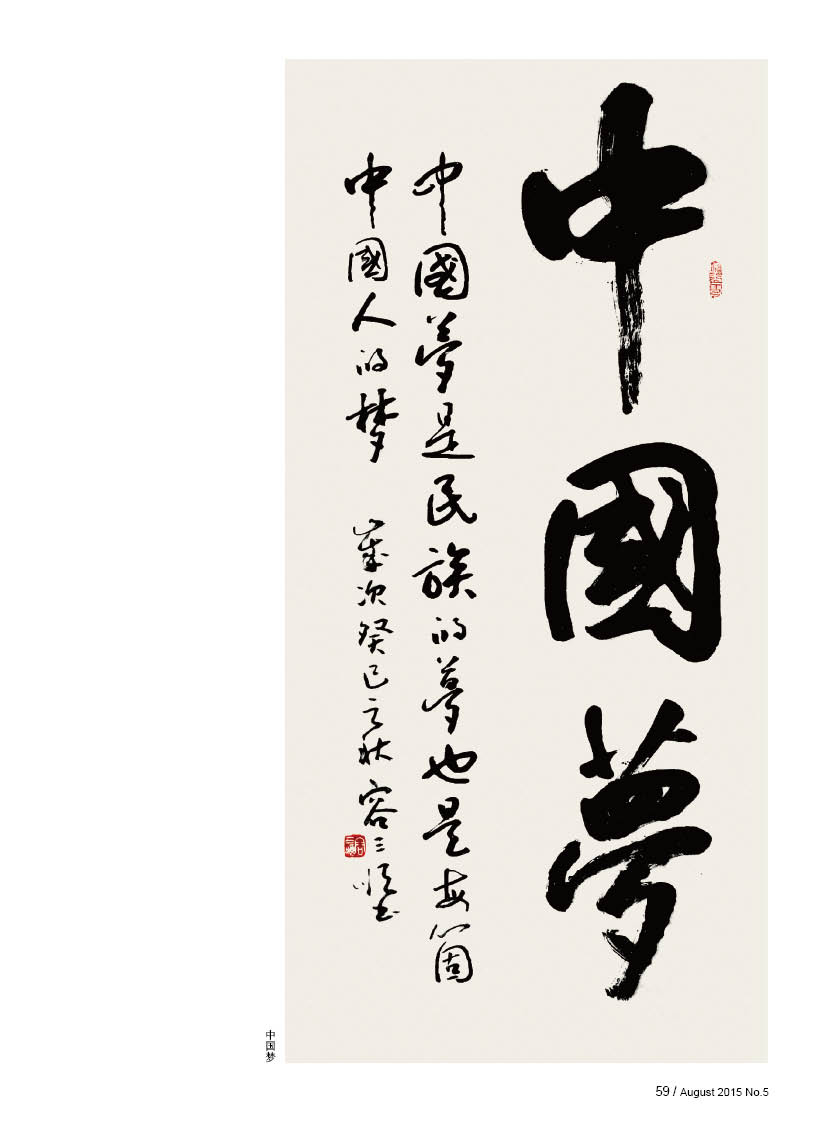 中國夢
中國夢是民族的夢也是每箇
中國人的梦 歲次癸巳之秋 容三順书
中国梦
59 / August 2015 No.5